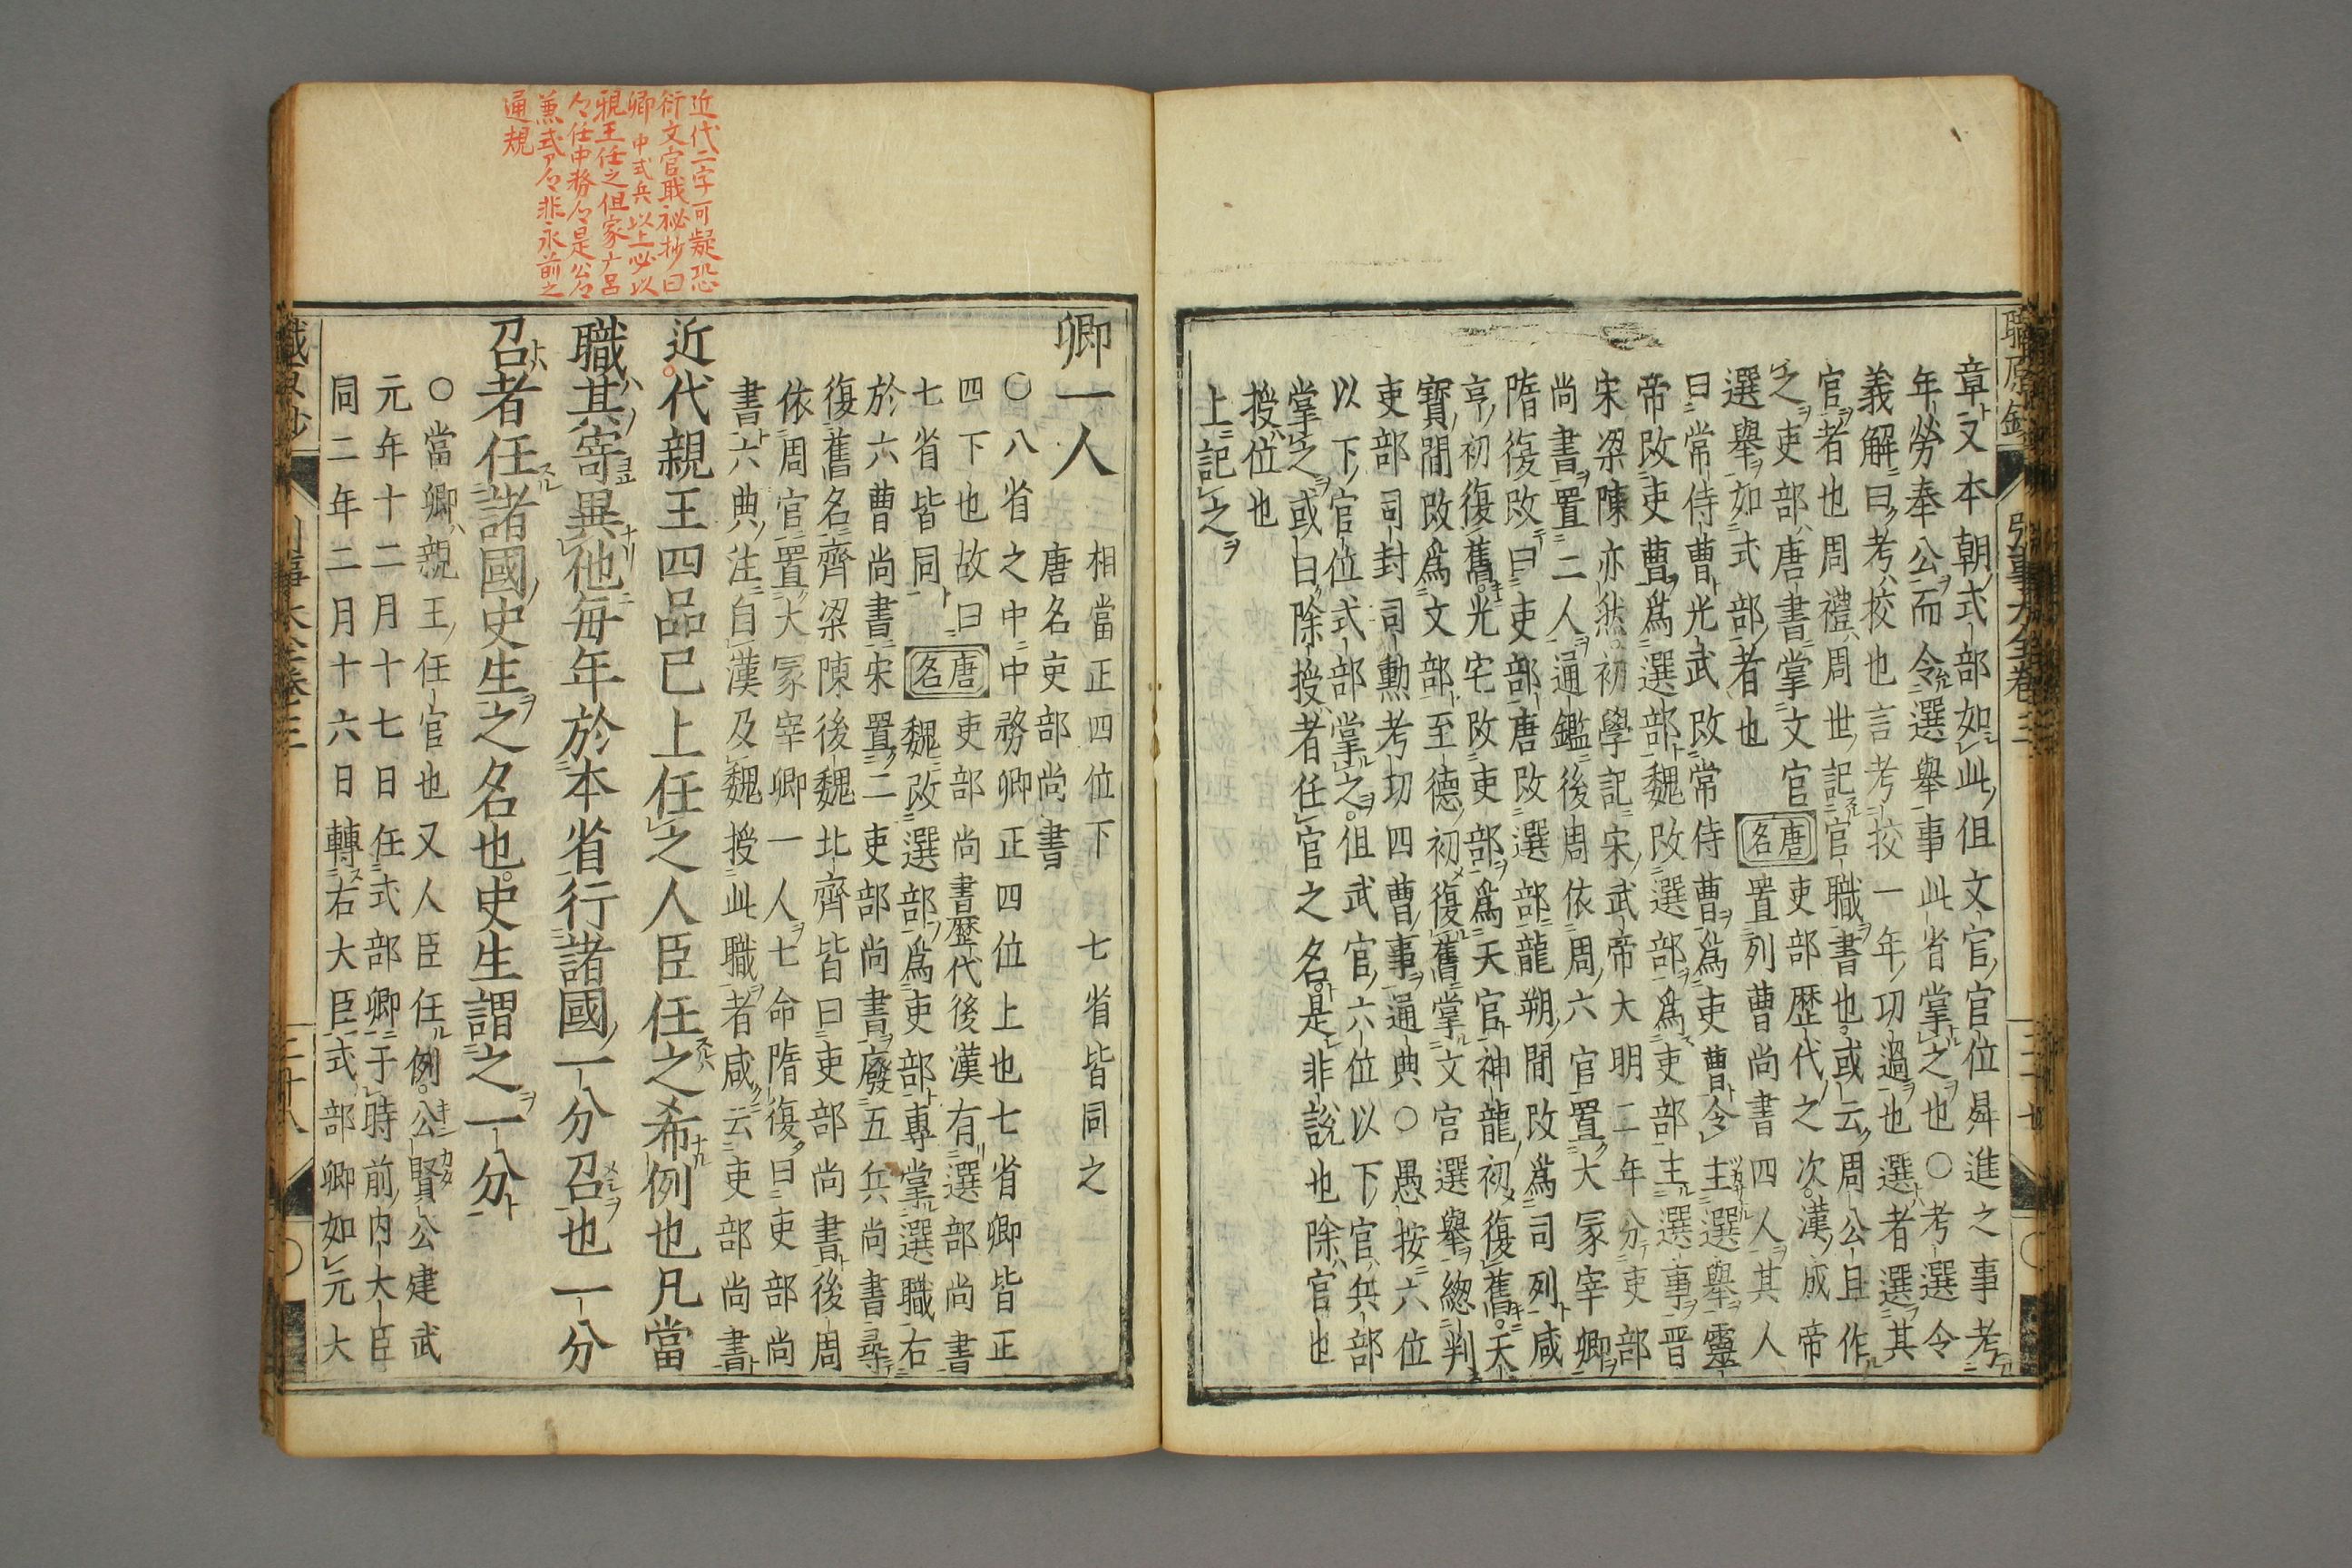 職原鈔
引事大全卷三
三十七
章又本朝式部如此但文官官位舜進之事考
年勞奉公而令選舉事此省掌之也○考選令
義解曰考挍也言考挍一年功過也選者選其
官者也周禮周世記官職書也或云周公旦作
之吏部唐書掌文官唐名吏部歴代之次漢成帝
選舉如式部者也置列曹尚書四人其人
曰常侍曹光武改常侍曹爲吏曹令主選舉靈
帝改吏曹爲選部魏改選部爲吏部主選事晋
宋梁陳亦然初學記宋武帝大明二年分吏部
尚書置二人通鑑後周依周六官置大冢宰卿
隋復改曰吏部唐改選部龍朔間改爲司列咸
亨初復舊光宅改吏部爲天官神龍初復舊天
寳間改爲文部至德初復舊掌文官選舉總判
吏部司封司勲考功四曹事通典○愚按六位
以下官位式部掌之但武官六位以下官兵部
掌之或曰除授者任官之名是非説也除官也
授位也
上記之
卿一人
相當正四位下　七省皆同之
唐名吏部尚書
○八省之中中務卿正四位上也七省卿皆正
四下也故曰吏部尚書歴代後漢有選部尚書
七省皆同唐名魏改選部爲吏部專掌選職右
於六曹尚書宋置二吏部尚書廢五兵尚書尋
復舊名齊梁陳後魏北齊皆曰吏部尚書後周
依周官置大冢宰卿一人七命隋復曰吏部尚
書六典注自漢及魏授此職者咸云吏部尚書
近代親王四品已上任之人臣任之希例也凡當
職其寄異他毎年於本省行諸國一分召也一分
召者任諸國史生之名也史生謂之一分
○當卿親王任官也又人臣任例公賢公建武
元年十二月十七日任式部卿于時前内大臣
同二年二月十六日轉右大臣式部卿如元大
二十八
近代二字可疑恐
衍文官職祕抄曰
卿 中式兵以上必以
親王任之但家广呂
〻任中務〻是公〻
兼式ア〻非永前之
通規